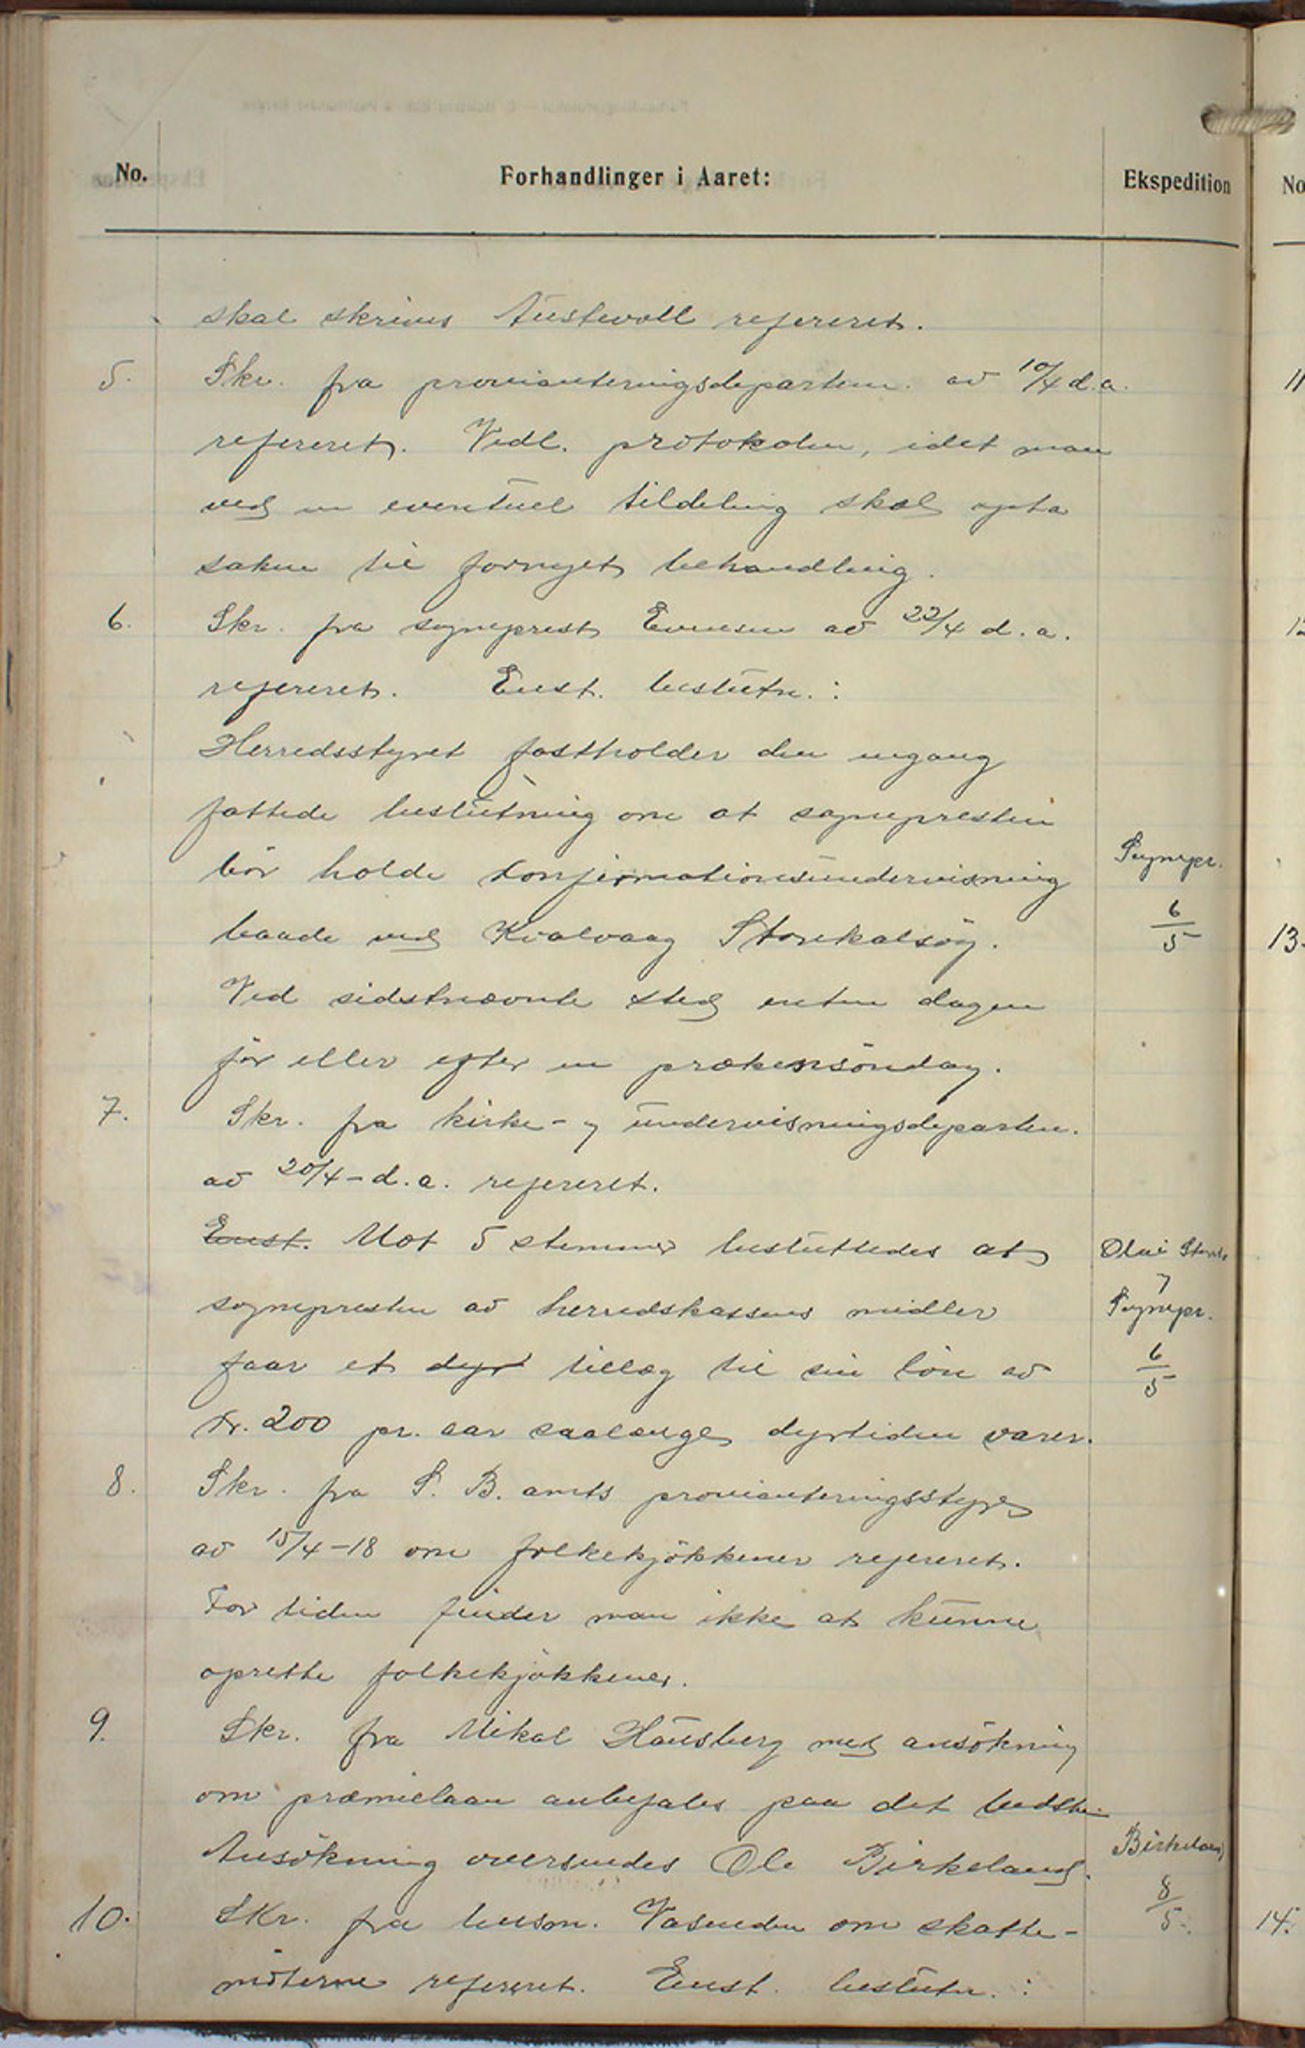 No. Forhandlinger i Aaret: Ekspedition No
skal skrives Austevoll refereret.
5. Skr. fra provianteringsdepartem. av 10/4 d.a. 11
refereret. Vedl. protokolen, idet man
ved en eventuel tildeling skal opta
saken til fornyet behandling.
6. Skr. fra sogneprest Evensen av 22/4 d.a.
refereret. Enst. beslutn.:
Herredsstyret fastholder den engang
fattede beslutning om at sognepresten
bör holde konfirmationsundervisning Sognepr.
baade ved Kvalvaag Storekalsöy. 6/5 13.
Ved sidstnævnte sted enten dagen
för eller efter en prækensöndag.
7. Skr. fra kirke- og undervisningsdeparten.
av 20/4-d.a. refereret.
Enst. Mot 5 stemmer besluttedes at Olai
sognepresten av herredskassens midler Sognepr.
faar et dyr tillæg til sin lön av 6/5
kr. 200 pr. aar saalænge dyrtiden varer.
8. Skr. fra S. B. amts provianteringsstyre
av 15/4-18 om folkekjökkener refereret.
For tiden finder man ikke at kunne
oprette folkekjökkener.
9. Skr. fra Mikal Hausberg med ansökning
om præmielaan anbefales paa det bedste.
Ansökning oversendes Ole Birkeland. Birkeland
10. Skr. fra lensm. Vasenden om skatte- 8/5 14.
möterne refereret. Enst. beslutn.: